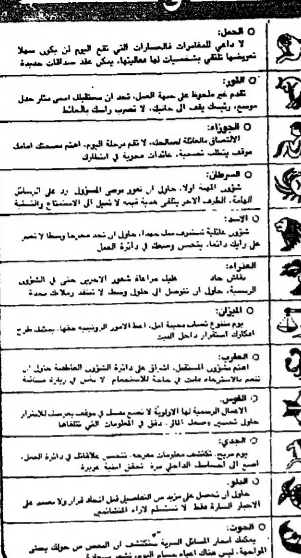 ○ الحمل:
لا داعي للمغامرات فالخسارات التي تقع اليوم لن يكون سهلا
تعويضها تلتقي بشخصيات لها فعاليتها، يمكن عقد صداقات جديدة
○ الثور:
تقدم غير ملحوظ على جبهة العمل، تجد ان مستقبلك امسى مثار جدل
موسع، رئيسك يقف الى جانبك، لا تضرب راسك بالحائط
○ الجوزاء:
الالتصاق بالعائلة لصالحك، لا تقم برحلة اليوم، اهتم بصحتك امامك
موقف يتطلب تضحية، عائدات مجزية في انتظارك
○ السرطان:
شؤون المهنة اولا، حاول ان تعزز مرضى المسؤول رد على الرسائل
الهامة، الطرف الاخر يتلقى هدية قيمة لا تميل الى
○ الاسد:
شؤون عائلية تستوقف حاول ان تجد مخرجا وسطا لا تصر
على رأيك دائما، يتحسن وضعك في دائرة العمل
العذراء:
نقاش حاد عليك مراعاة شعور الاخرين حتى في الشؤون
الرسمية، حاول ان تتوصل الى حلول وسط، لا تفتقد زملاء
○ الميزان:
يوم متنوع تصادف محبة اعط الامور الروتينية حقها، يمكنك طرح
افكارك استقرار داخل البيت
○ العقرب:
اهتم بشؤون المستقبل، اشراق على دائرة الشؤون العاطفية حاول ان
تنعم بالاسترخاء فانت في حاجة للاستجمام لا بأس في زيارة
○ القوس:
الاعمال الرسمية لها الاولوية لا تضع نفسك في موقف يعرضك للاضرار
حاول تحسين وضعك المالي، دقق في المعلومات التي تتلقاها
○ الجدي:
يوم مريح، تكتشف معلومات مفرحة، تتحسن علاقاتك في دائرة العمل،
اصغ الى احساسك الداخلي مرة تحقق امنية عزيزة
○ الدلو:
حاول ان تحصل على مزيد من التفاصيل قبل اتخاذ قرار ولا تعتمد على
الاخبار السارة فقط لا تستسلم لاراء المتشائمين
○ الحوت:
يمكنك اسعار المسائل السرية ستكتشف ان البعض من حولك يستحق